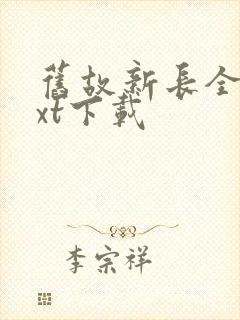 舊故新長全
xt下載
李宗祥